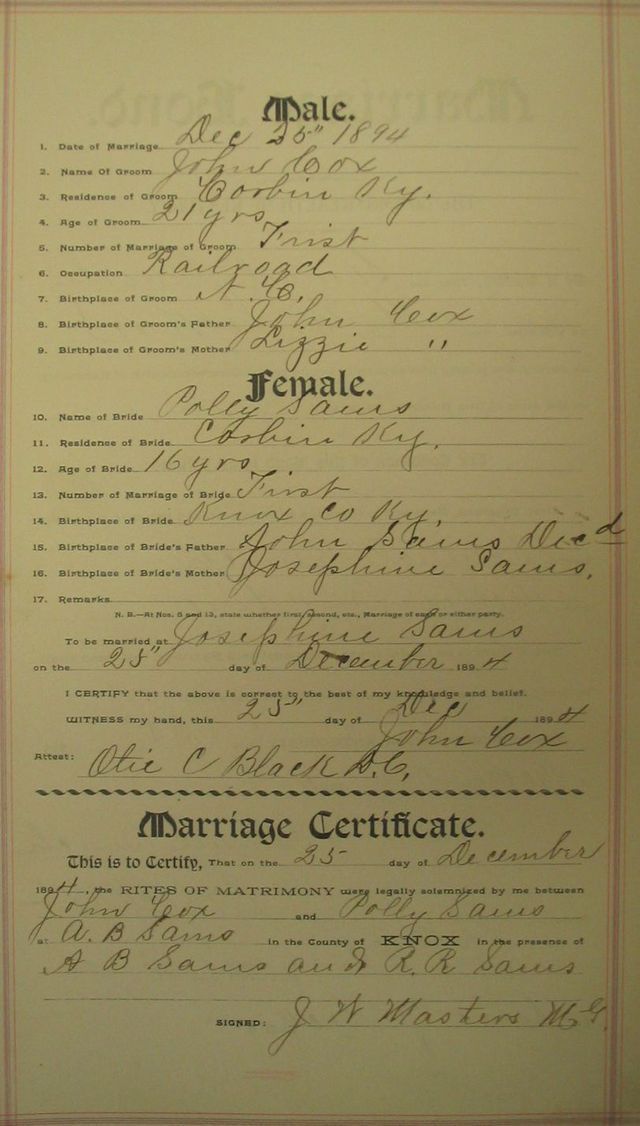 Male.
1. Date of Marriage Dec 25" 1894
2. Name Of Groom John Cox
3. Residence of Groom Corbin Ky.
4. Age of Groom 21 yrs
5. Number of Marriage of Groom First
6. Occupation Railroad
7. Birthplace of Groom N. C.
8. Birthplace of Groom's Father John Cox
9. Birthplace of Groom's Mother Lizzie "
Female.
10. Name of Bride Polly Sams
11. Residence of Bride Corbin Ky.
12. Age of Bride 16 yrs
13. Number of Marriage of Bride First
14. Birthplace of Bride Knox Co Ky.
15. Birthplace of Bride's Father John Sams Decd
16. Birthplace of Bride's Mother Josephine Sams.
17. Remarks
N. B.—At Nos. 5 and 13, state whether first, second, etc., Marriage of each or either party.
To be married at Josephine Sams
on the 25" day of December 1894
I CERTIFY that the above is correct to the best of my knowledge and belief.
WITNESS my hand, this 25" day of Dec 1894
John Cox
Attest: Otie C Black D.C.
Marriage Certificate.
This is to Certify, That on the 25 day of December
1894, the RITES OF MATRIMONY were legally solemnized by me between
John Cox and Polly Sams
at A. B Sams in the County of KNOX in the presence of
A B Sams and R. R Sams
SIGNED: J W Masters M.G.